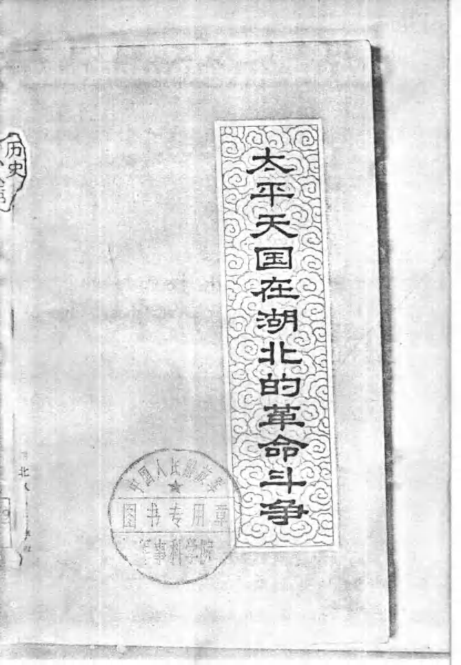 太平天国在湖北的革命斗争
历史
中国人民解放军
图书专用章
军事科学院
北